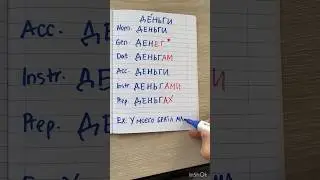 ДЕ́НЬГИ
Nom. ДЕНЬГИ
Gen. ДЕНЕГ*
Dat. ДЕНЬГАМ
Acc. ДЕНЬГИ
Instr. ДЕНЬГАМИ
Prep. ДЕНЬГАХ
Ex: У МОЕГО БРАТА МА
Acc.
Instr.
Prep.
InShot